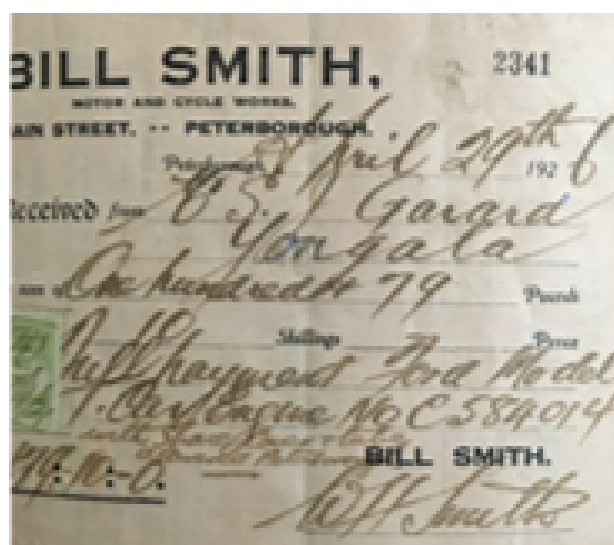 BILL SMITH, 2341
MOTOR AND CYCLE WORKS,
AIN STREET, -- PETERBOROUGH.
Peterborough, April 29th 1926
Received from C. E. J Garard
Yongala
sum of One hundred & 79 Pounds
Shillings Pence
Full payment Ford Model
T. Car Engine No C584014
BILL SMITH.
79:10:-0.
W H Smith